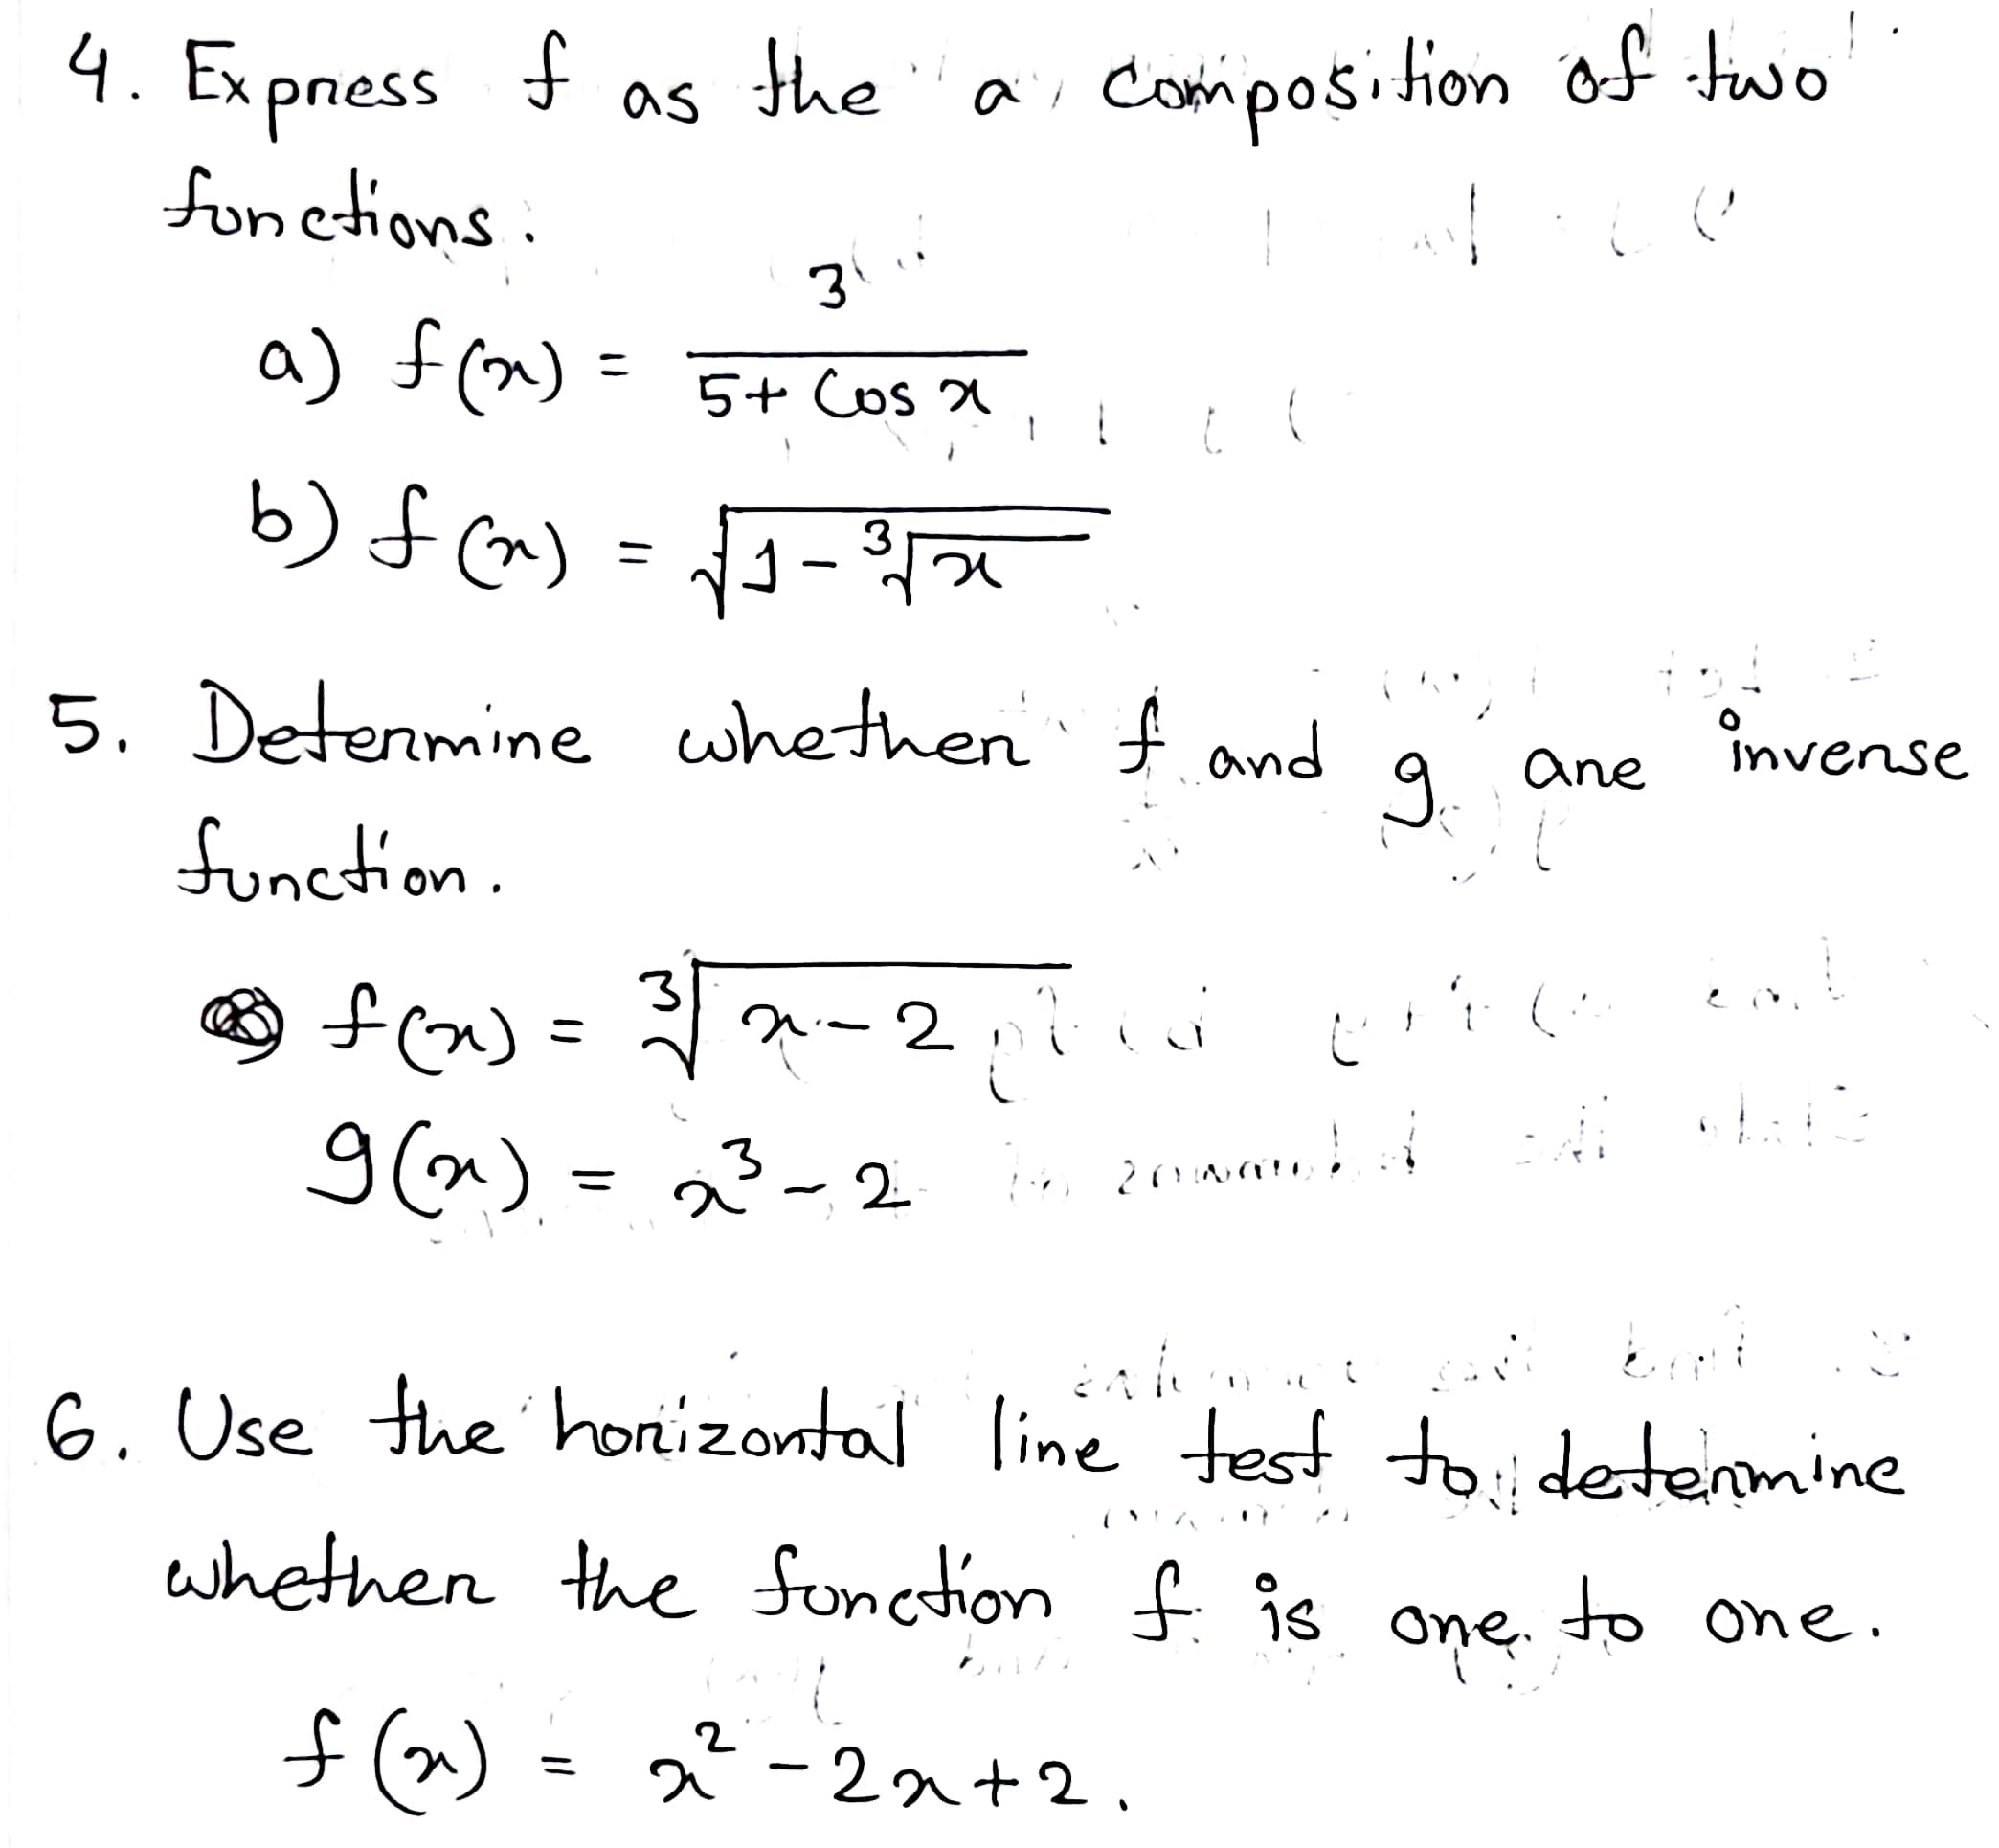 4. Express f as the a composition of two
functions.
a) f(x) = 3/(5+ Cos x)
b) f(x) = √(1-∛x)
5. Determine whether f and g are inverse
function.
f(x) = ∛(x-2)
g(x) = x³-2
6. Use the horizontal line test to determine
whether the function f is one to one.
f(x) = x²-2x+2.